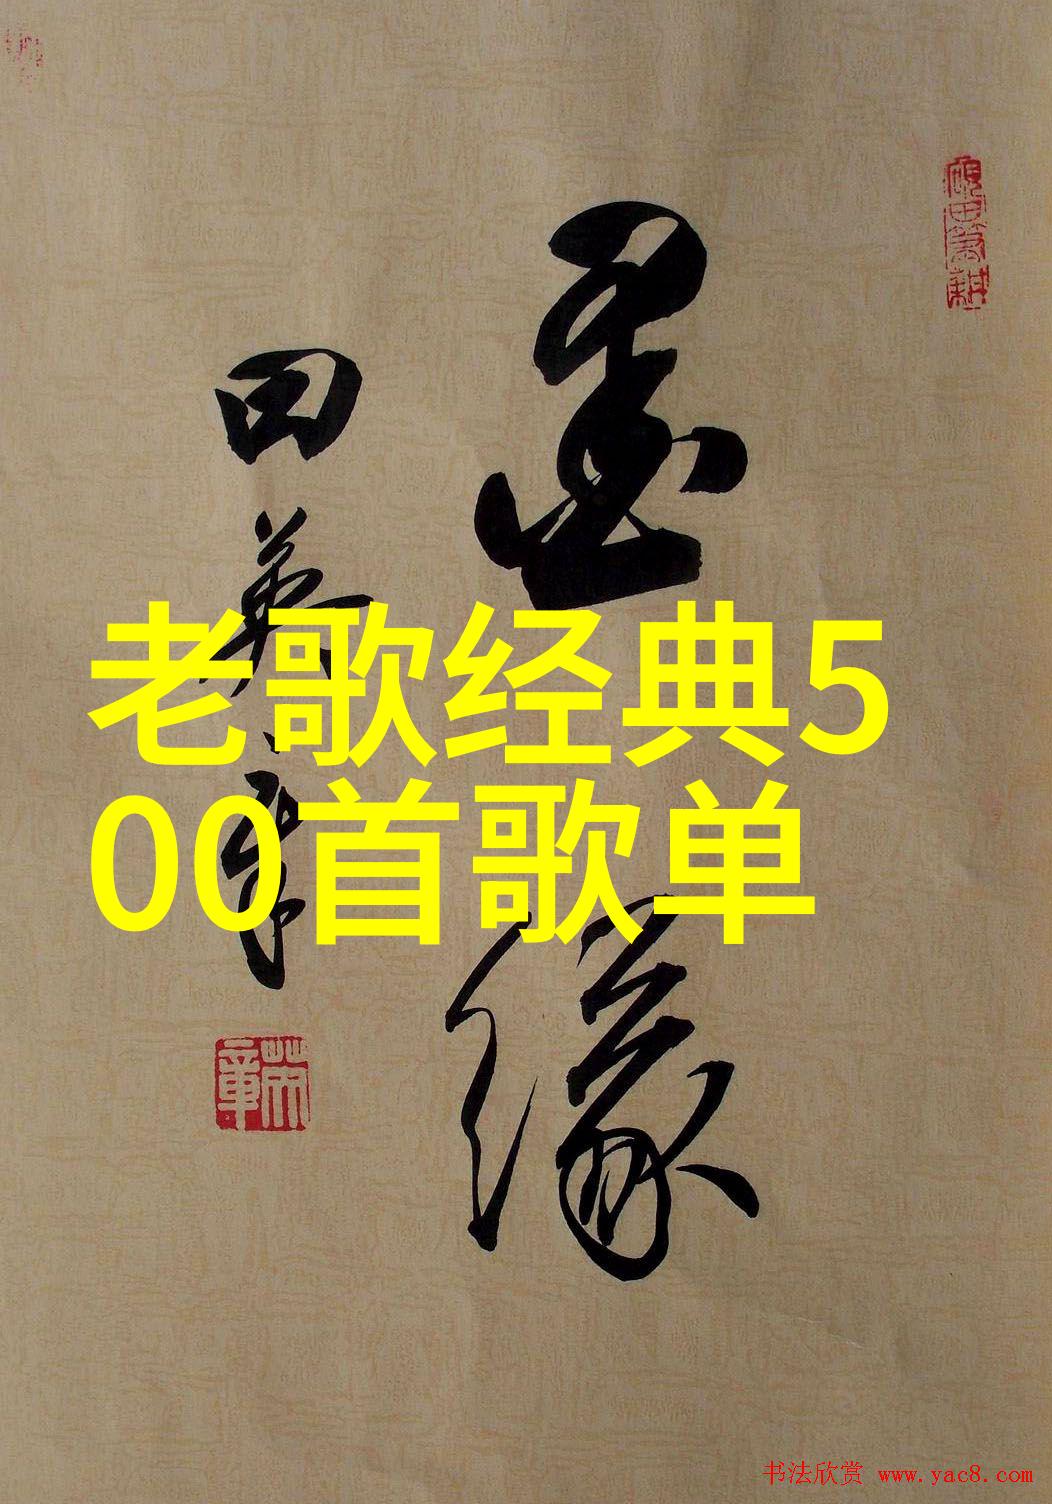 墨缘
田英章
老歌经典5
00首歌单
书法欣赏 www.yac8.com